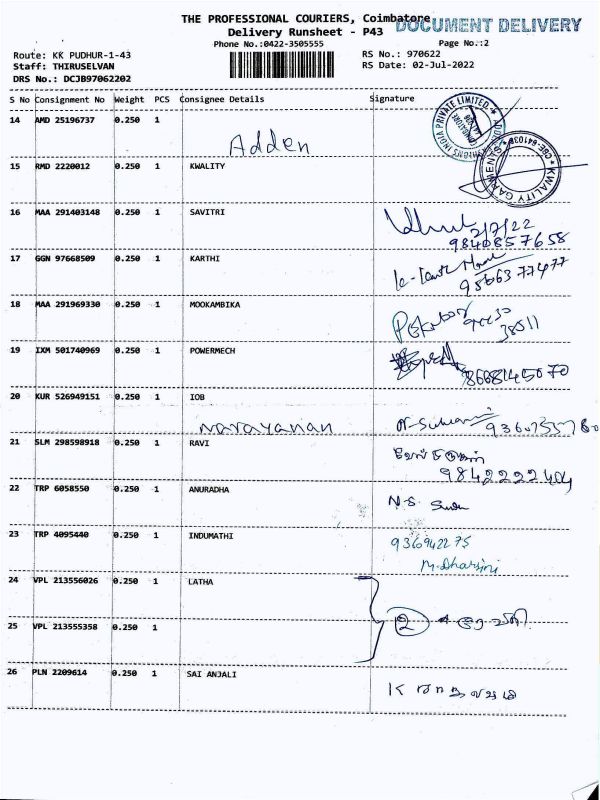 THE PROFESSIONAL COURIERS, Coimbatore
DOCUMENT DELIVERY
Delivery Runsheet - P43
Phone No.:0422-3505555
Page No.:2
Route: KK PUDHUR-1-43
RS No.: 970622
Staff: THIRUSELVAN
RS Date: 02-Jul-2022
DRS No.: DCJB97062202
S No Consignment No Weight PCS Consignee Details Signature
14 AMD 25196737 0.250 1
Adden
15 RMD 2220012 0.250 1 KWALITY
KWALITY GARMENTS
16 MAA 291403148 0.250 1 SAVITRI
2/7/22
9840857658
17 GGN 97668509 0.250 1 KARTHI
9566377477
18 MAA 291969330 0.250 1 MOOKAMBIKA
38511
19 IXM 501740969 0.250 1 POWERMECH
20 KUR 526949151 0.250 1 IOB
Narayanan
21 SLM 298598918 0.250 1 RAVI
9842222404
22 TRP 6058550 0.250 1 ANURADHA
N.S.
23 TRP 4095440 0.250 1 INDUMATHI
936942275
M. Dharsini
24 VPL 213556026 0.250 1 LATHA
2
25 VPL 213555358 0.250 1
26 PLN 2209614 0.250 1 SAI ANJALI